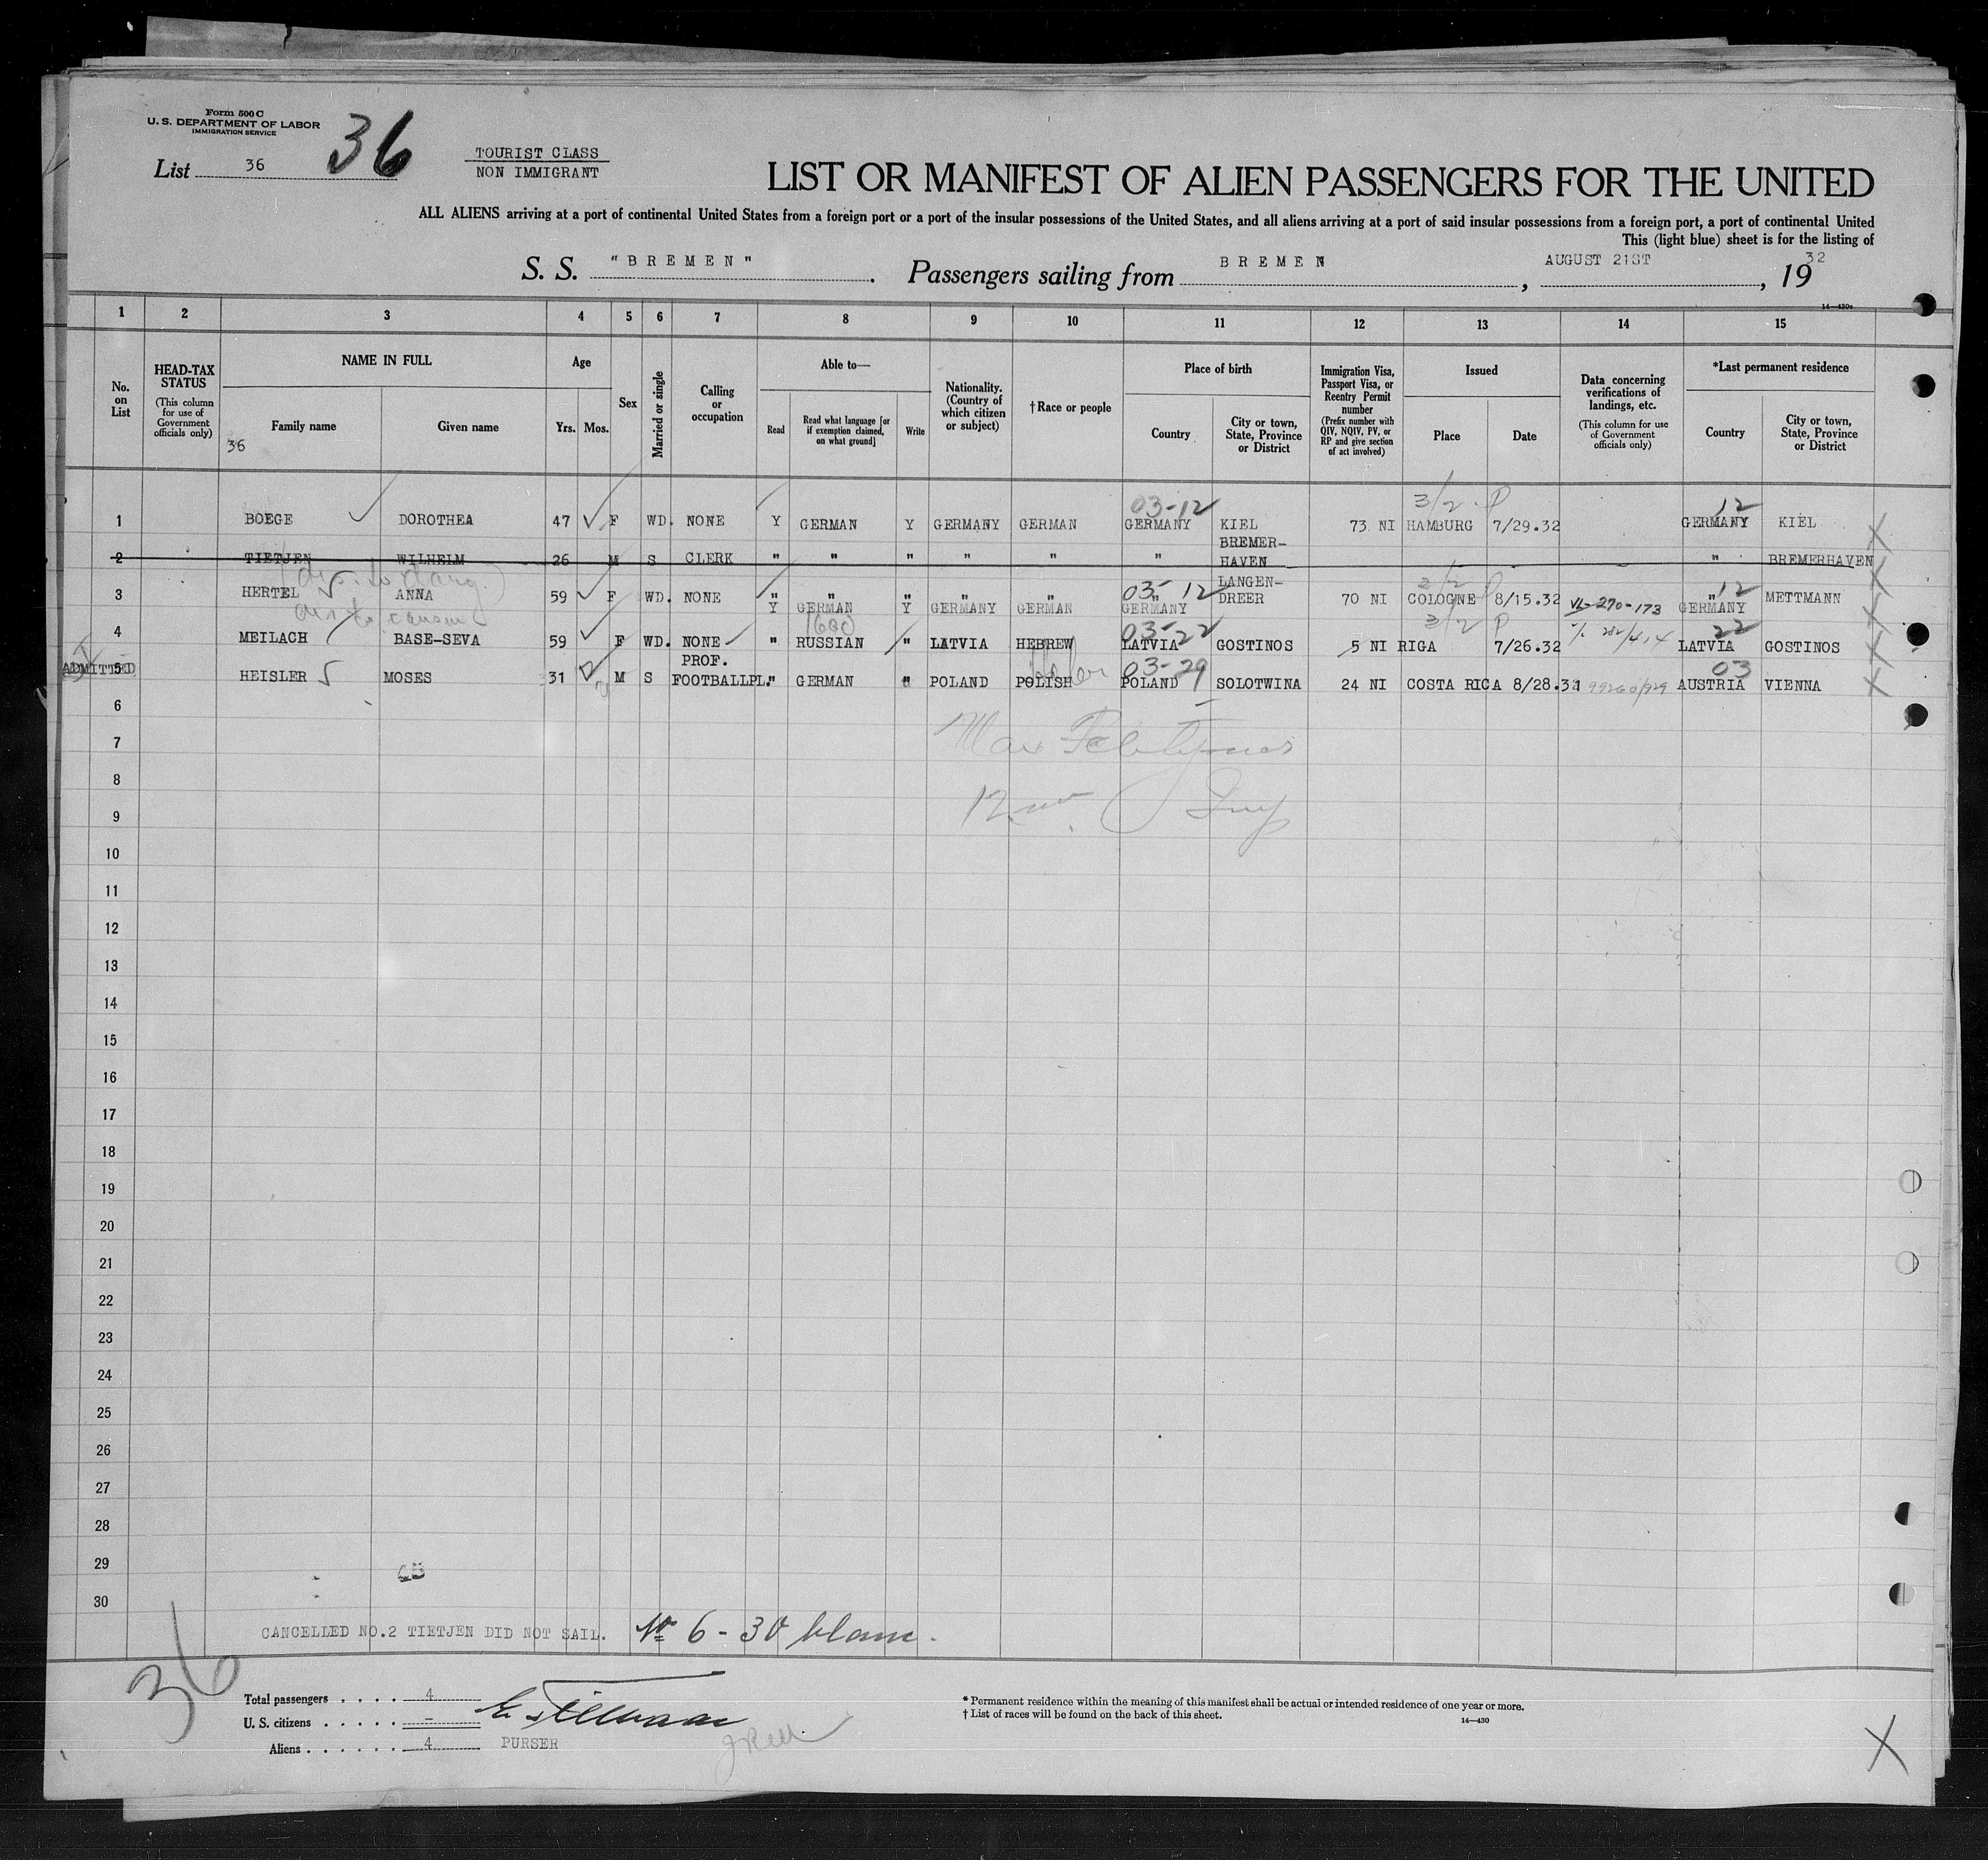 Form 500 C
U. S. DEPARTMENT OF LABOR
IMMIGRATION SERVICE
List 36 36
TOURIST CLASS
NON IMMIGRANT
LIST OR MANIFEST OF ALIEN PASSENGERS FOR THE UNITED
ALL ALIENS arriving at a port of continental United States from a foreign port or a port of the insular possessions of the United States, and all aliens arriving at a port of said insular possessions from a foreign port, a port of continental United
This (light blue) sheet is for the listing of
S. S. "BREMEN". Passengers sailing from BREMEN, AUGUST 21ST, 1932
14—430c
1 2 3 4 5 6 7 8 9 10 11 12 13 14 15
No. on List
HEAD-TAX STATUS
(This column for use of Government officials only)
NAME IN FULL
Family name
Given name
36
Age
Yrs. Mos.
Sex
Married or single
Calling or occupation
Able to—
Read
Read what language [or if exemption claimed, on what ground]
Write
Nationality. (Country of which citizen or subject)
† Race or people
Place of birth
Country
City or town, State, Province or District
Immigration Visa, Passport Visa, or Reentry Permit number
(Prefix number with QIV, NQIV, PV, or RP and give section of act involved)
Issued
Place
Date
Data concerning verifications of landings, etc.
(This column for use of Government officials only)
*Last permanent residence
Country
City or town, State, Province or District
03-12 3/2 P 12
1 BOEGE DOROTHEA 47 F WD. NONE Y GERMAN Y GERMANY GERMAN GERMANY KIEL 73 NI HAMBURG 7/29.32 GERMANY KIEL
2 TIETJEN WILHELM 26 M S CLERK " " " " " " BREMER-HAVEN " BREMERHAVEN
03-12 3/2 P 12
3 HERTEL ANNA 59 F WD. NONE " " " " " " LANGEN-DREER 70 NI COLOGNE 8/15.32 " METTMANN
Y GERMAN Y GERMANY GERMAN GERMANY 290-173 GERMANY
03-22 3/2 P 22
4 MEILACH BASE-SEVA 59 F WD. NONE " RUSSIAN " LATVIA HEBREW LATVIA GOSTINOS 5 NI RIGA 7/26.32 LATVIA GOSTINOS
03-29 03
ADMITTED 5 HEISLER MOSES 31 M S PROF. FOOTBALLPL. " GERMAN " POLAND POLISH POLAND SOLOTWINA 24 NI COSTA RICA 8/28.31 AUSTRIA VIENNA
6
7
8
9
10
11
12
13
14
15
16
17
18
19
20
21
22
23
24
25
26
27
28
29
30
CANCELLED NO.2 TIETJEN DID NOT SAIL. No 6 - 30 blanc.
36
Total passengers . . . . . 4
U. S. citizens . . . . . –
Aliens . . . . . . 4
PURSER
* Permanent residence within the meaning of this manifest shall be actual or intended residence of one year or more.
† List of races will be found on the back of this sheet.
14—430
X